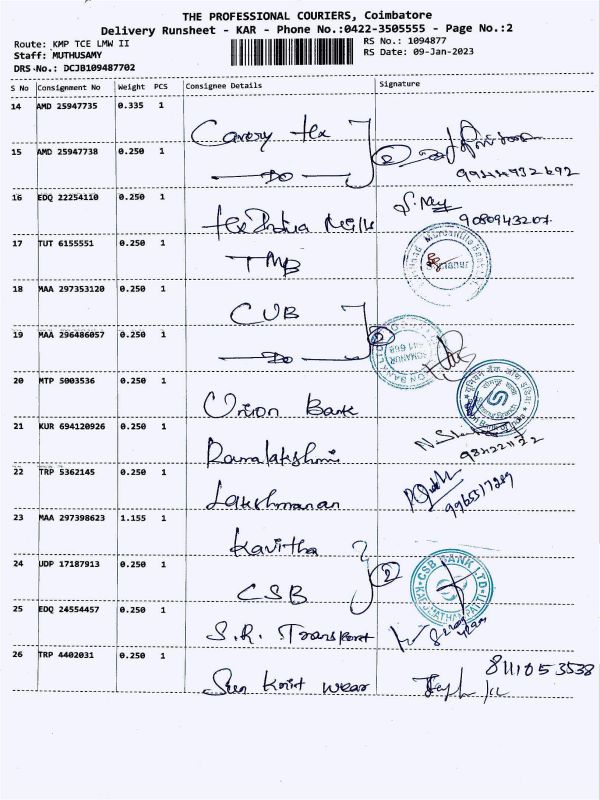 THE PROFESSIONAL COURIERS, Coimbatore
Delivery Runsheet - KAR - Phone No.:0422-3505555 - Page No.:2
Route: KMP TCE LMW II
RS No.: 1094877
Staff: MUTHUSAMY
RS Date: 09-Jan-2023
DRS No.: DCJB109487702
S No Consignment No Weight PCS Consignee Details Signature
14 AMD 25947735 0.335 1
15 AMD 25947738 0.250 1
Do
16 EDQ 22254110 0.250 1
9080943207
17 TUT 6155551 0.250 1
TMB
18 MAA 297353120 0.250 1
CUB
19 MAA 296486057 0.250 1
Do 2
20 MTP 5003536 0.250 1
Union Bank
21 KUR 694120926 0.250 1
Ramalakshmi
22 TRP 5362145 0.250 1
Lakshmanan
9965517289
23 MAA 297398623 1.155 1
Kavitha
24 UDP 17187913 0.250 1
CSB 2
CSB BANK LTD
25 EDQ 24554457 0.250 1
S.R. Transport
26 TRP 4402031 0.250 1
8111053538
Sun Knit wear